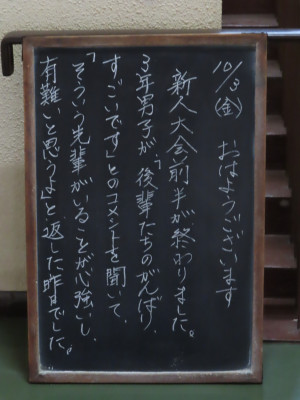 10/3(金) おはようございます
新人大会前半が終わりました。
3年男子が、「後輩たちのがんばり、
すごいです」とのコメントを聞いて、
「そういう先輩がいることが心強いし、
有難いと思うよ」と返した昨日でした。